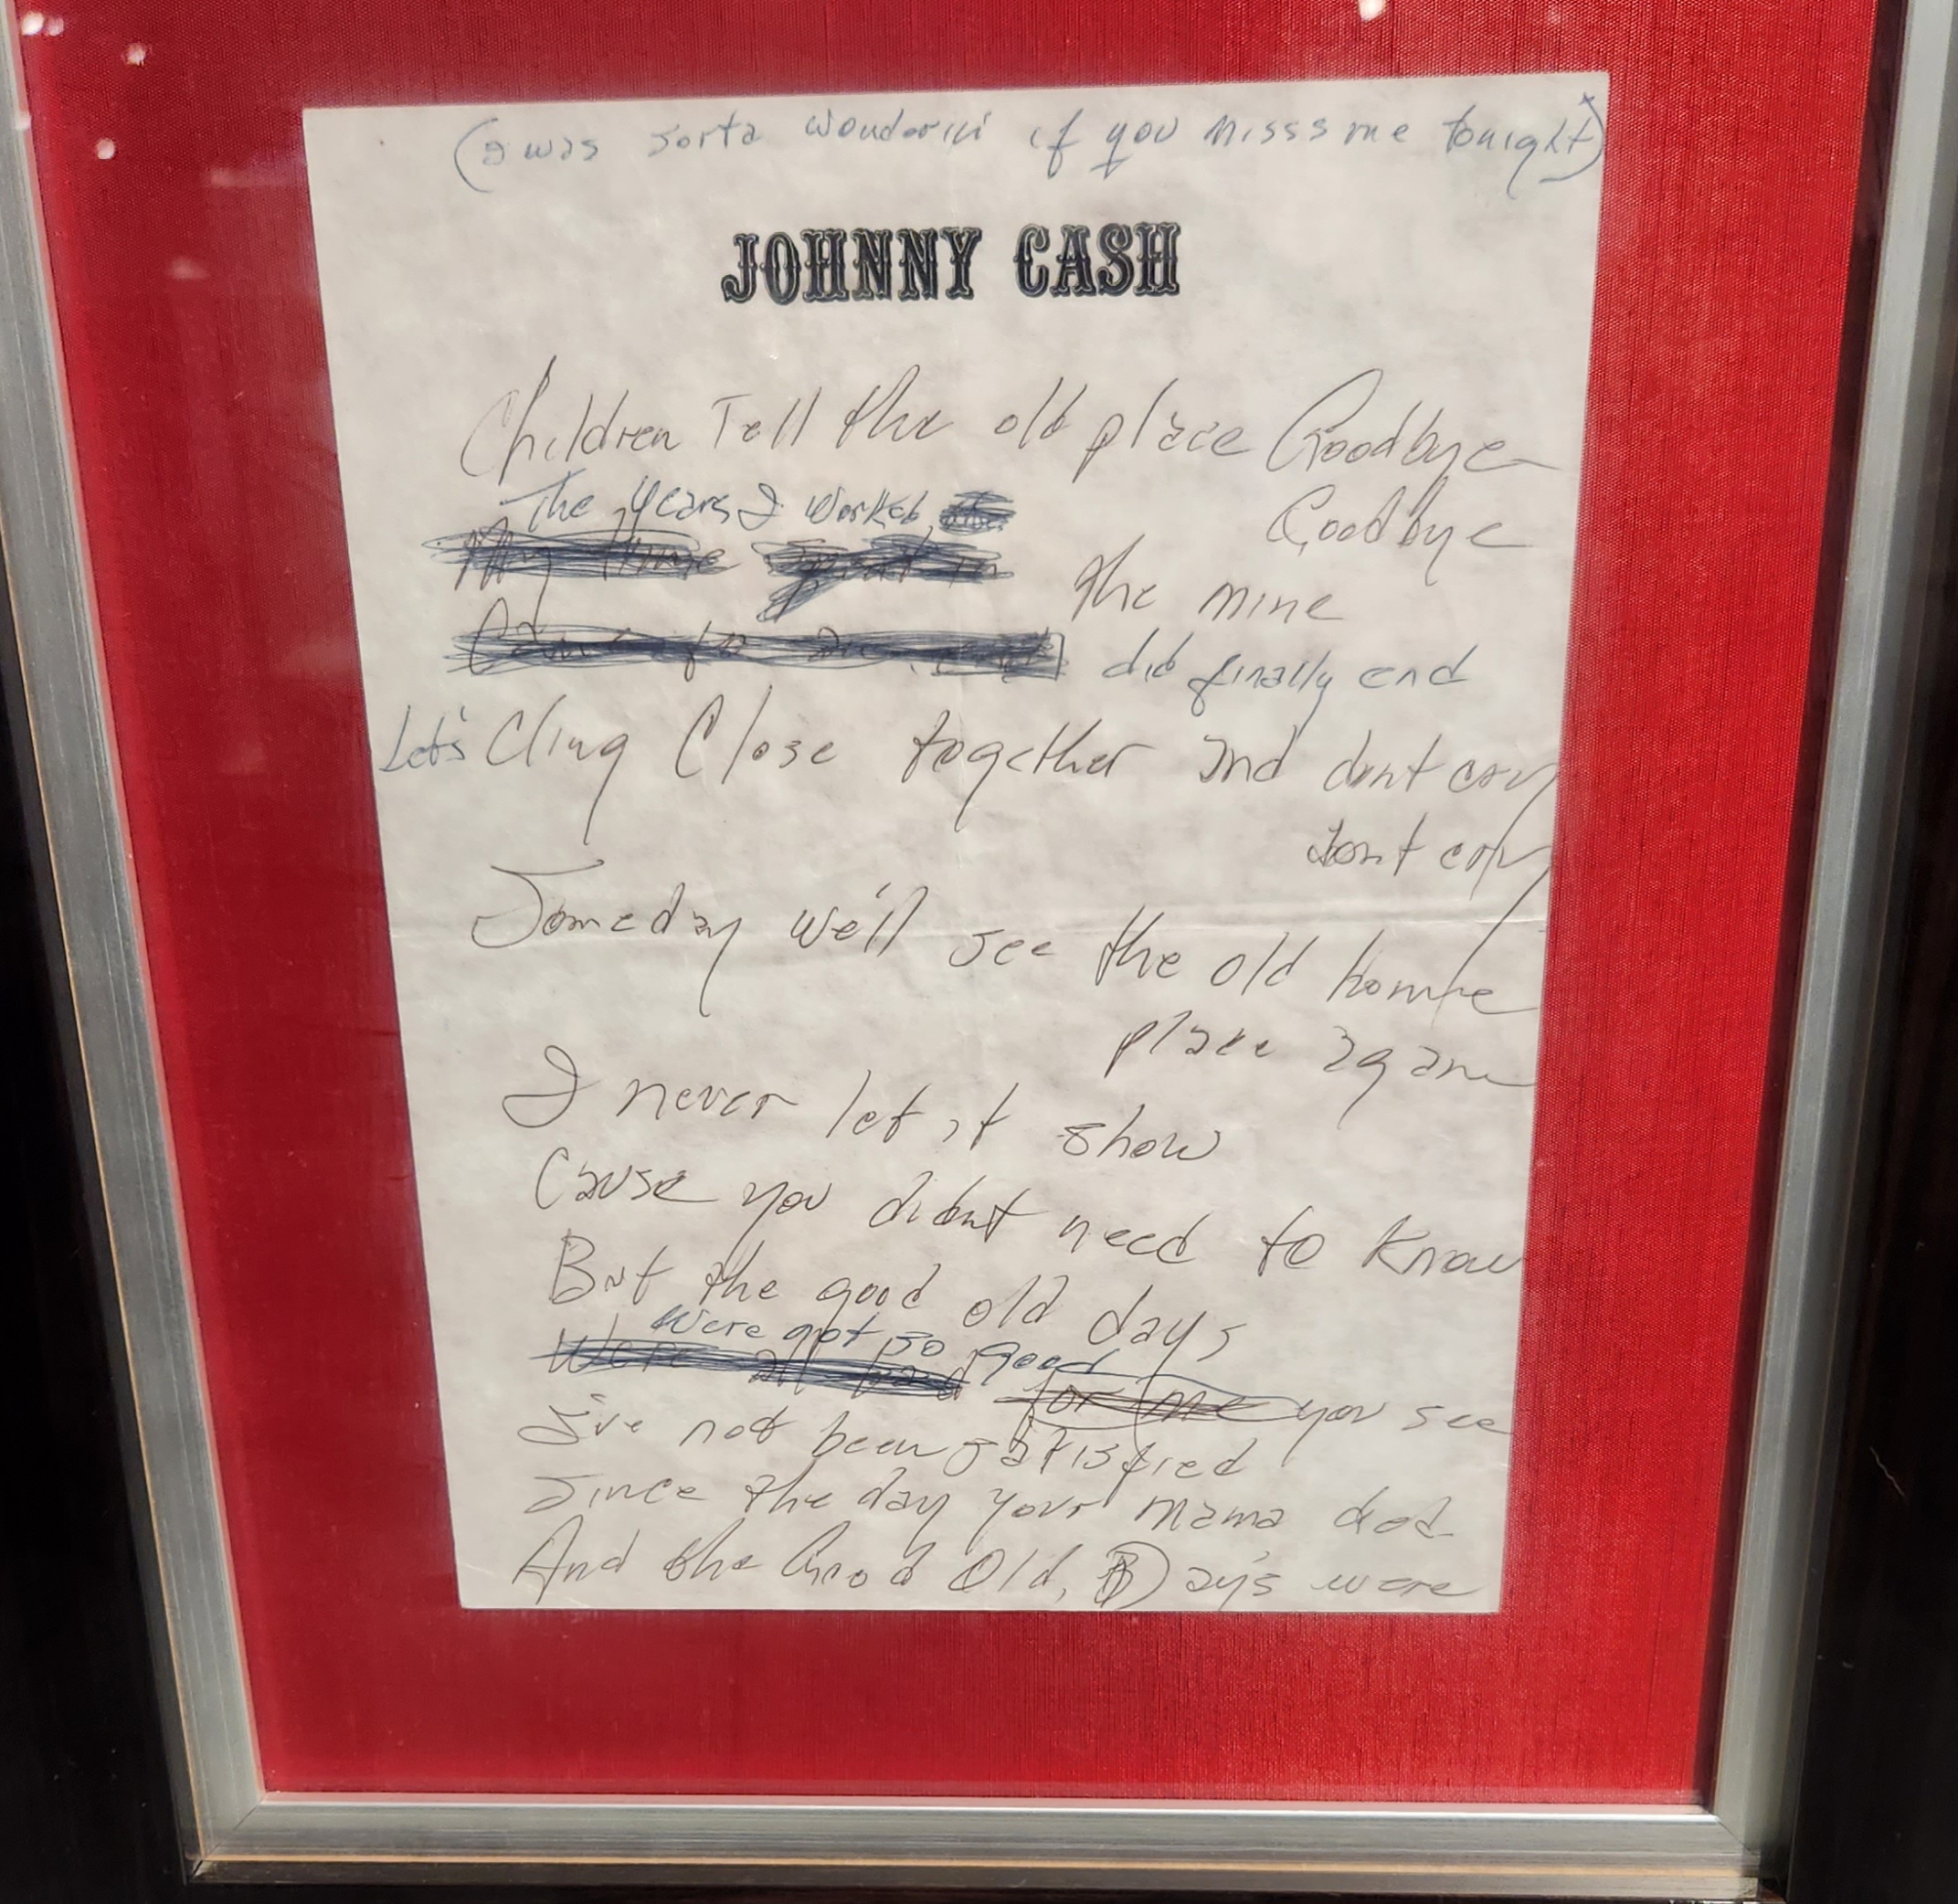 (I was sorta wonderin if you misss me tonight)
JOHNNY CASH
Children Tell the old place Goodbye
Goodbye
The years I worked
the mine
did finally end
Let's Cling Close together and dont cry
dont cry
Someday we'll see the old home
place again
I never let it show
Cause you didnt need to know
But the good old days
Were not so good
Were all bad for me you see
I've not been satisfied
Since the day your mama died
And the Good Old, Day's were